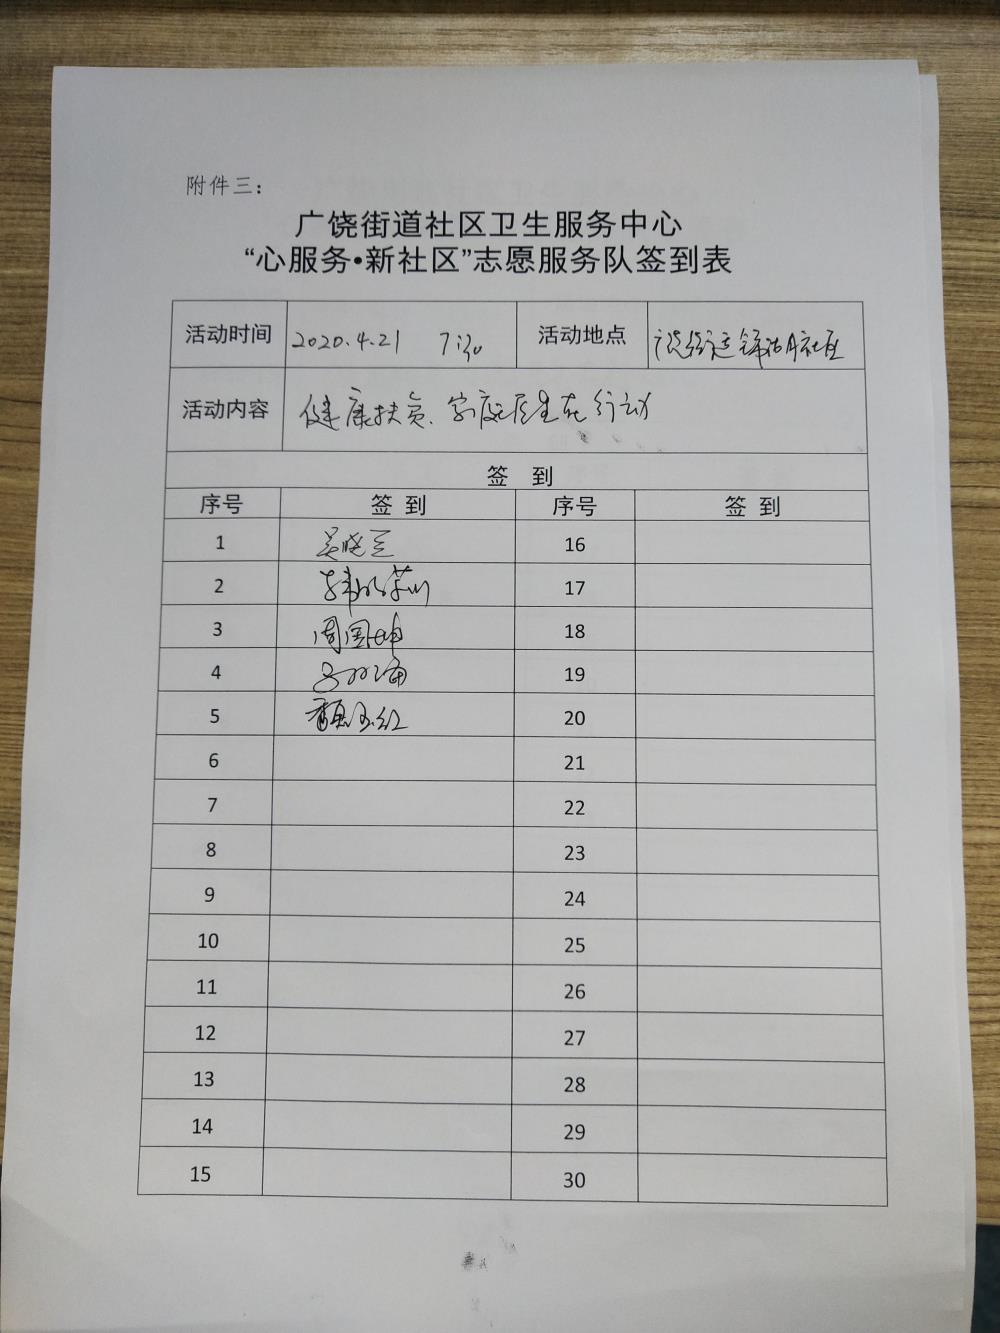 附件三：
广饶街道社区卫生服务中心
“心服务•新社区”志愿服务队签到表
活动时间 2020.4.21 7:30 活动地点 街道 社区
活动内容 健康扶贫、家庭医生在行动
签 到
序号 签 到 序号 签 到
1 吴晓兰 16
2 17
3 周国坤 18
4 19
5 颜玉红 20
6 21
7 22
8 23
9 24
10 25
11 26
12 27
13 28
14 29
15 30